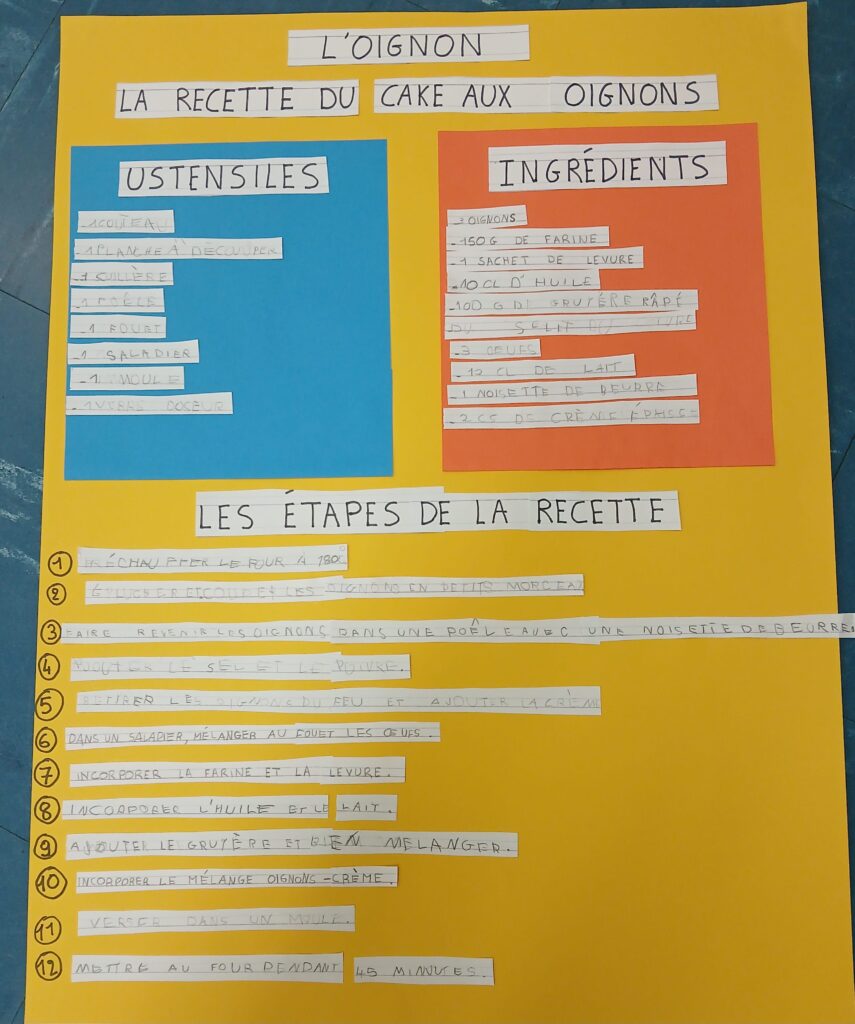 L'OIGNON
LA RECETTE DU CAKE AUX OIGNONS
USTENSILES
-1 COUTEAU
-1 PLANCHE À DÉCOUPER
-1 CUILLÈRE
-1 POÊLE
-1 FOUET
-1 SALADIER
-1 MOULE
-1 VERRE DOSEUR
INGRÉDIENTS
-3 OIGNONS
-150 G DE FARINE
-1 SACHET DE LEVURE
-10 CL D'HUILE
-100 G DE GRUYÉRE RÂPÉ
DU SEL ET DU POIVRE
-3 ŒUFS
-12 CL DE LAIT
-1 NOISETTE DE BEURRE
-2 CS DE CRÈME ÉPAISSE
LES ÉTAPES DE LA RECETTE
1 PRÉCHAUFFER LE FOUR À 180°
2 ÉPLUCHER ET COUPER LES OIGNONS EN PETITS MORCEAUX
3 FAIRE REVENIR LES OIGNONS DANS UNE POÊLE AVEC UNE NOISETTE DE BEURRE.
4 AJOUTER LE SEL ET LE POIVRE.
5 RETIRER LES OIGNONS DU FEU ET AJOUTER LA CRÈME
6 DANS UN SALADIER, MÉLANGER AU FOUET LES ŒUFS.
7 INCORPORER LA FARINE ET LA LEVURE.
8 INCORPORER L'HUILE ET LE LAIT.
9 AJOUTER LE GRUYÈRE ET BIEN MELANGER.
10 INCORPORER LE MÉLANGE OIGNONS-CRÈME.
11 VERSER DANS UN MOULE.
12 METTRE AU FOUR PENDANT 45 MINUTES.